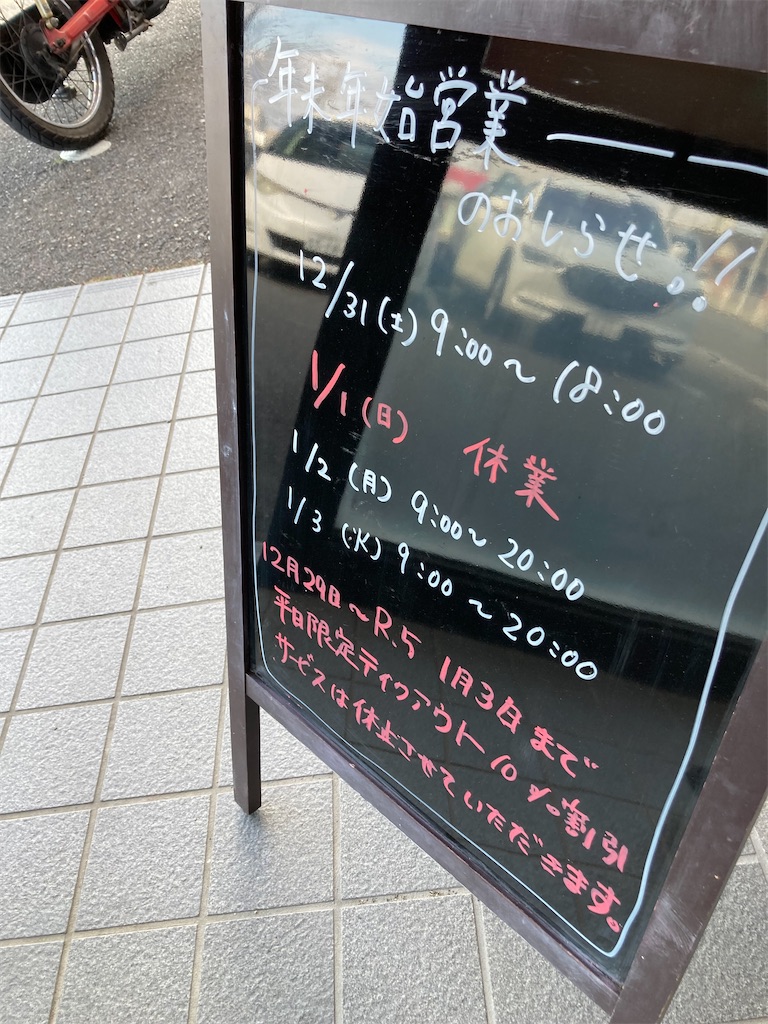 年末年始営業
のおしらせ!!
12/31(土) 9:00~18:00
1/1(日) 休業
1/2(月) 9:00~20:00
1/3(火) 9:00~20:00
12月29日~R.5 1月3日まで
平日限定テイクアウト10%割引
サービスは休止させていただきます。